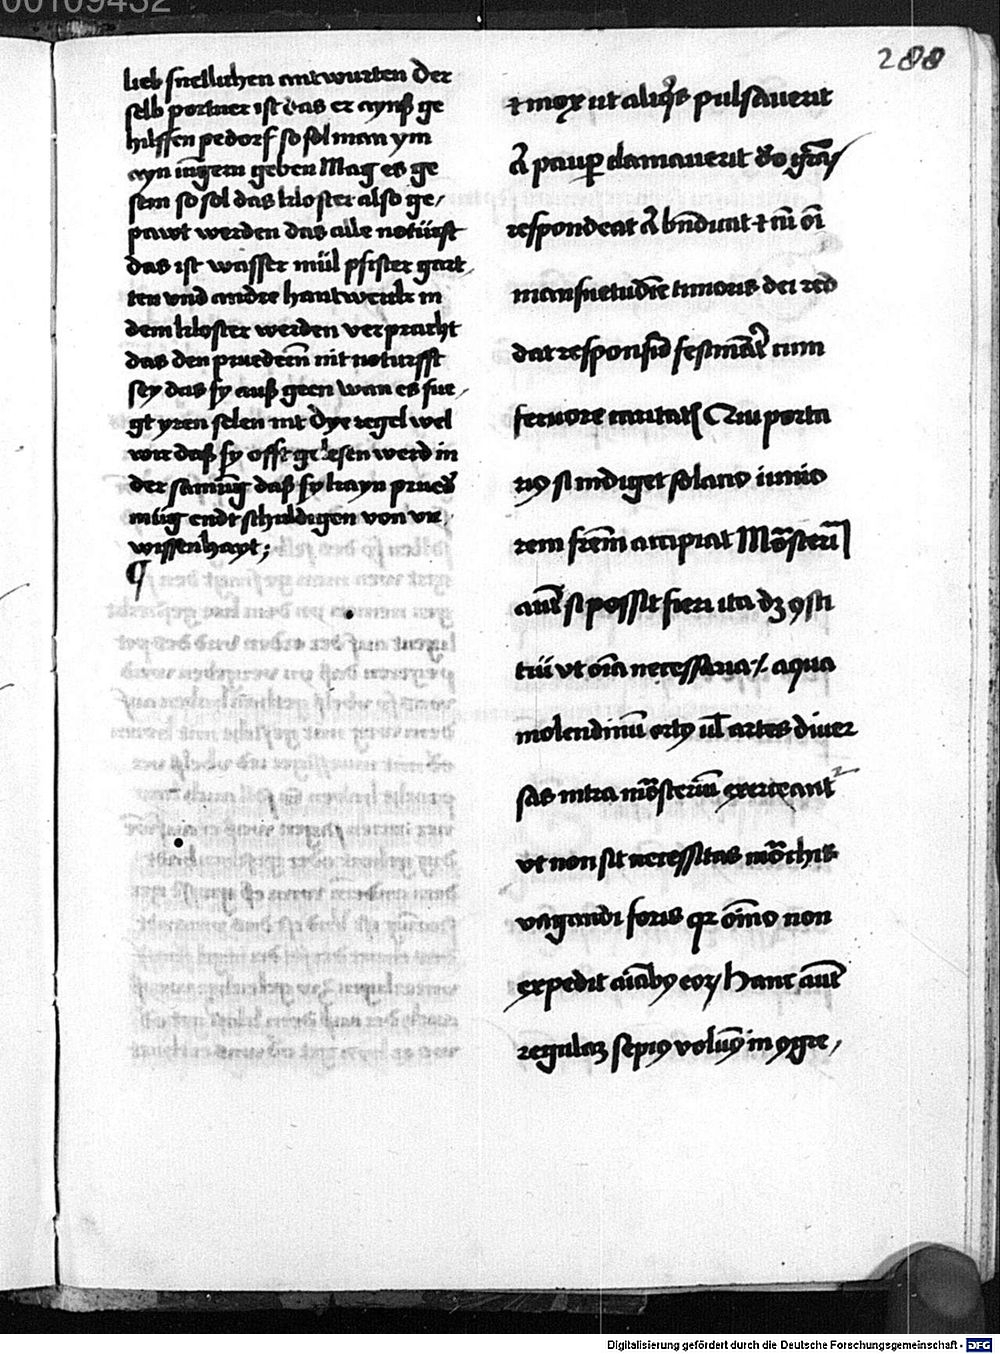 00109432
288
lieb snelluhen antwurten Der
selb portner ist das er aynß ge
hilffen pedorf so sol man ym
ayn iūgern geben Mag es ge
sein so sol das kloster also ge/
pawt werden das alle notürft
das ist wasser mül pfister gart
ten vnd andre hantwerk in
dem kloster werden verpracht
das den pruedern̄ nit noturfft
sey das sy auß geen wan es fue/
gt yren selen nit Dye regel wel
wir daß sy offt gelesen werd in
der samūg daß sy kayn prued᷑
müg endtschuldigen von vn/
wissenhayt;
¶
⁊ mox ut aliq̄s pulsauerit
a᷑ paup̄ clamauerit do gr̄as/
respondeat a᷑ bn̄dicat ⁊ cū oī
mansuetudīe timoris dei red
dat responsū festināt᷑ cum
feruore caritatꝭ Qui porta
riꝰ si indiget solatio iunio
rem frēm accipiat Mōasteriū
aut̄ si possit fieri ita dꝫ ꝯsti
tui ut oīa necessaria /. aqua
molendinū ortꝰ ul̄ artes diuer
sas intra mōasteriū exerceant᷑
vt non sit necessitas mōachis
vagandi foris qꝛ oīno non
expedit aīabꝰ eoꝝ Hanc aut̄
regulaꝫ sepiꝰ volumꝰ in ꝯgre/
Digitalisierung gefördert durch die Deutsche Forschungsgemeinschaft - DFG